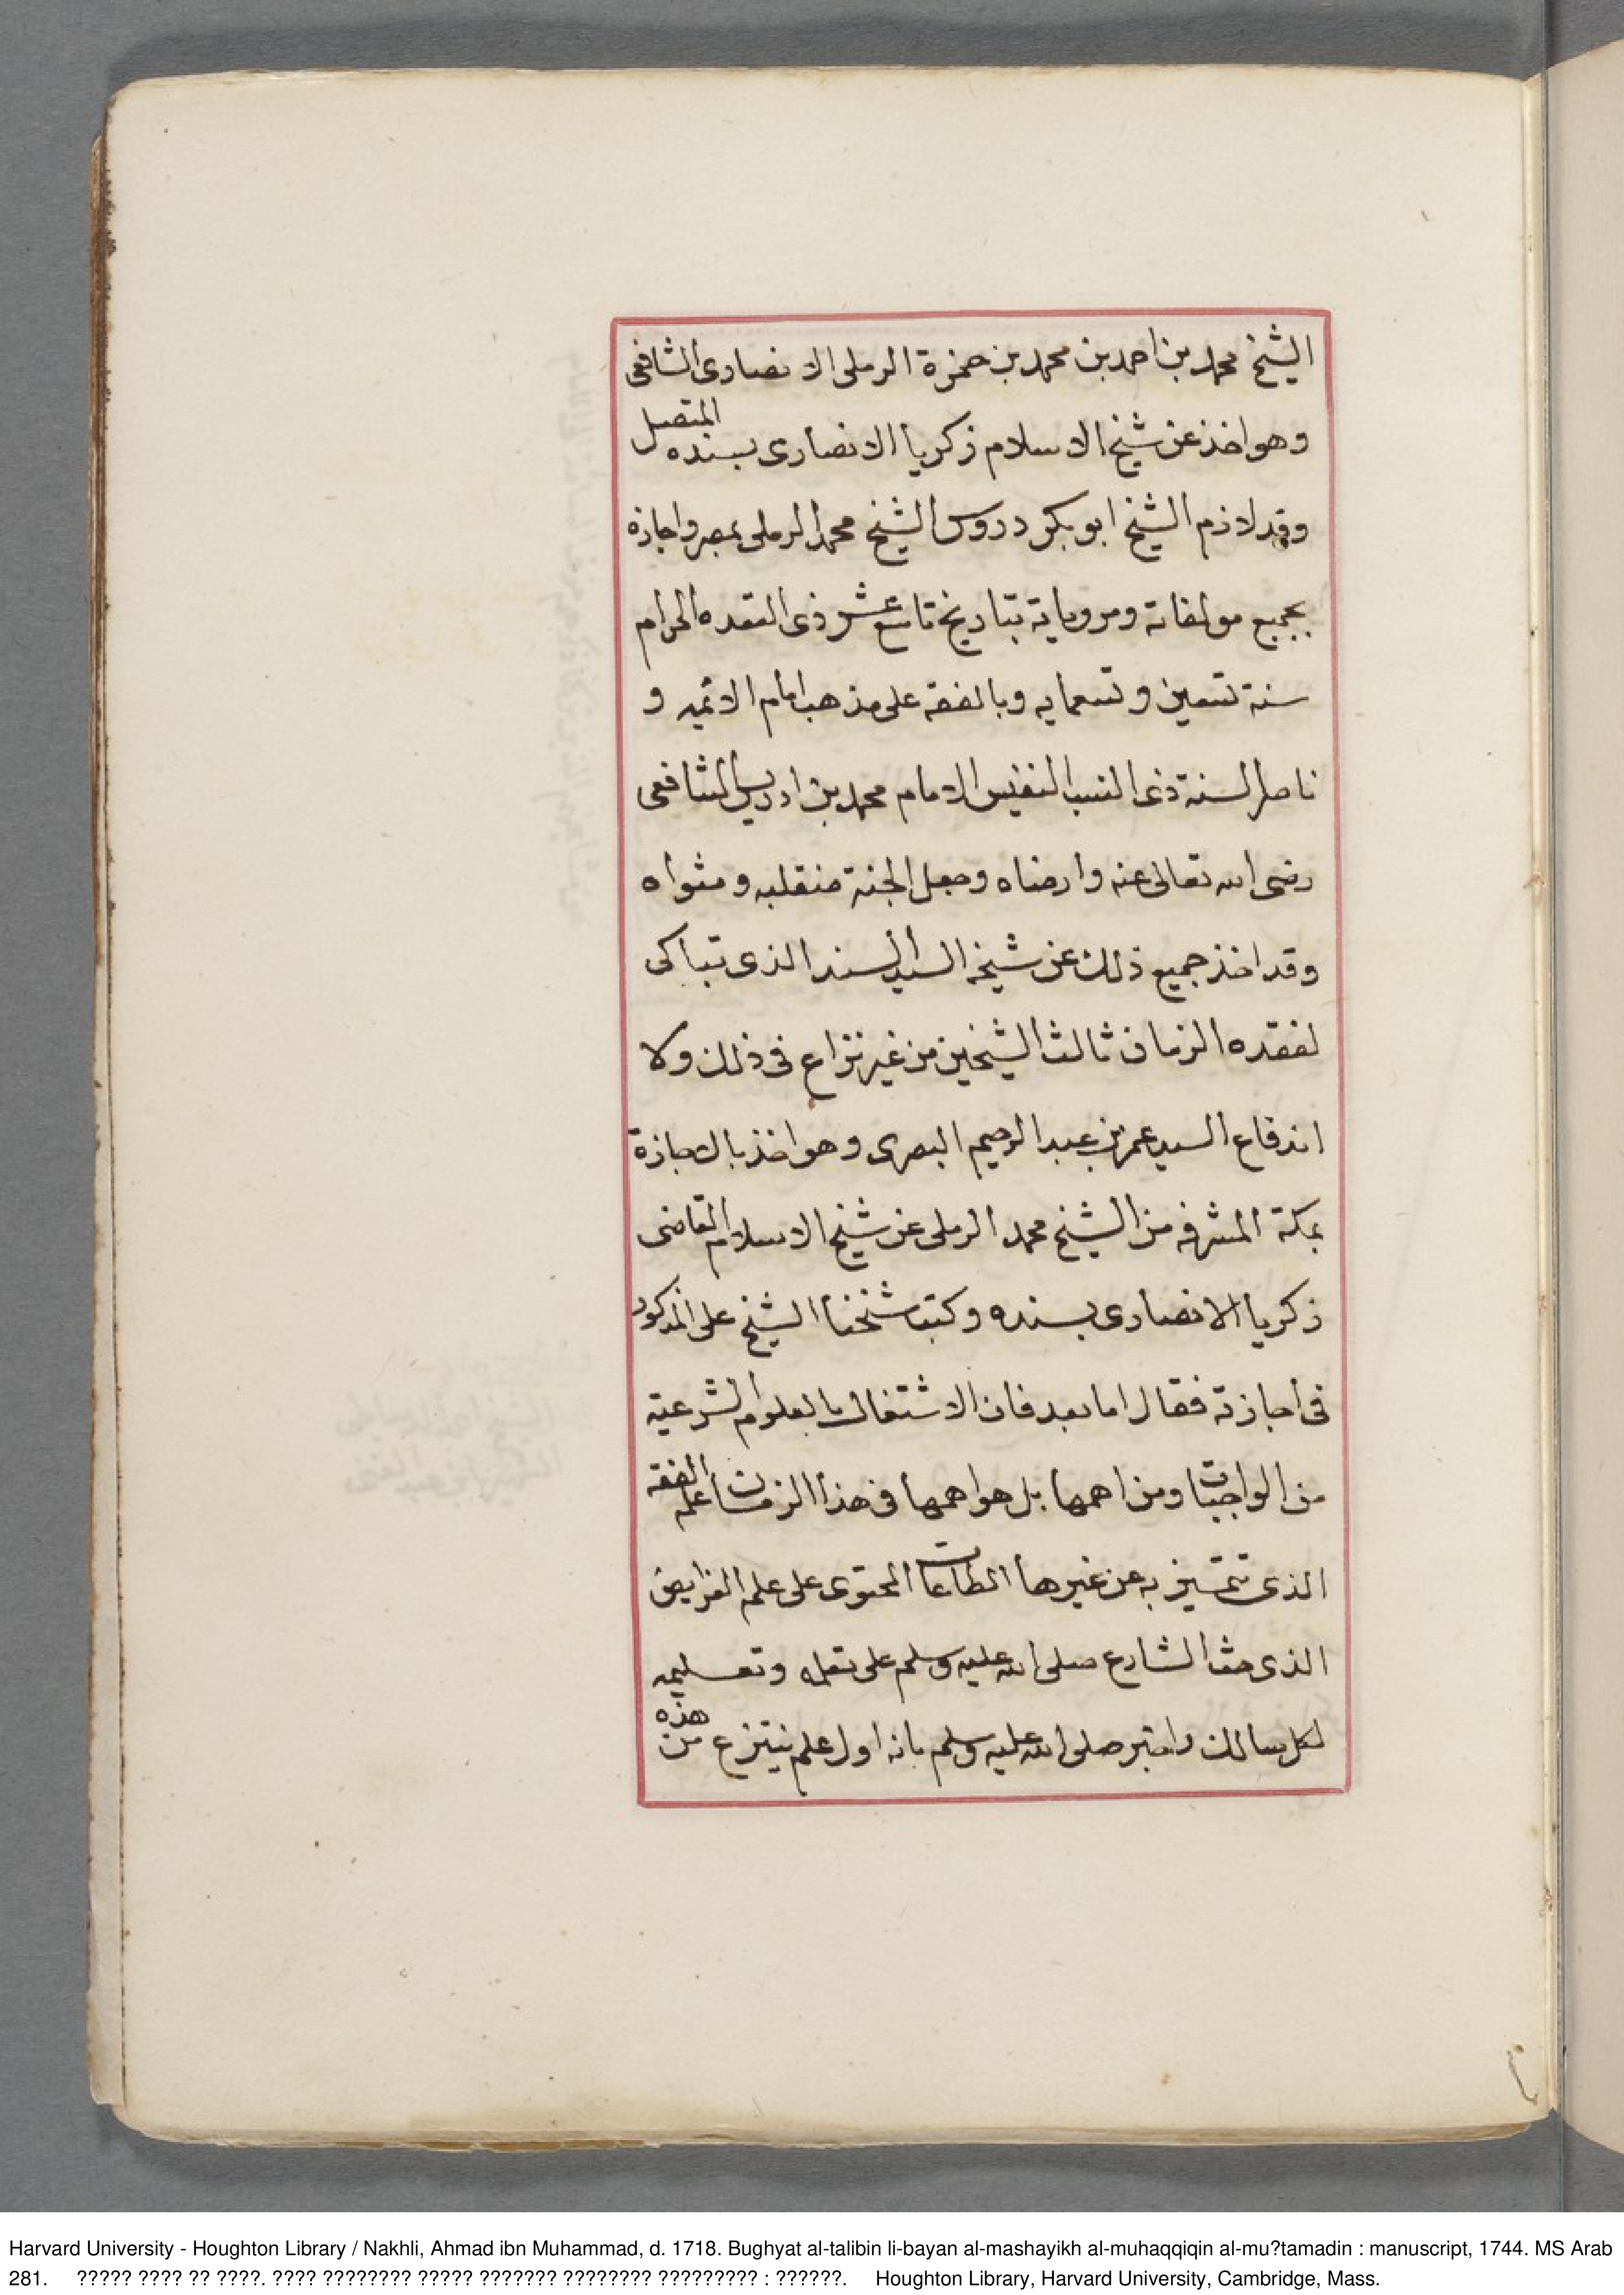 الشيخ محمد بن احمد بن محمد بن حمزة الرملى الانصارى الشافعى
وهو اخذ عن شيخ الاسلام زكريا الانصارى بسنده المتصل
وقد لازم الشيخ ابو بكر دروس الشيخ محمد الرملى بمصر واجازه
بجميع مولفاته ومروياته بتاريخ تاسع عشر ذى القعده الحرام
سنة تسعين وتسعمايه وبالفقه على مذهب امام الائمه و
ناصر السنة ذى النسب النفيس الامام محمد بن ادريس الشافعى
رضى الله تعالى عنه وارضاه وجعل الجنة منقلبه ومثواه
وقد اخذ جميع ذلك عن شيخه السيد السند الذى تباكى
لفقده الزمان ثالث الشيخين من غير نزاع فى ذلك ولا
اندفاع السيد عمر بن عبد الرحيم البصرى وهو اخذ بالاجازة
بمكة المشرفه من الشيخ محمد الرملى عن شيخ الاسلام القاضى
زكريا الانصارى بسنده وكتب شيخنا الشيخ على المذكور
فى اجازته فقال اما بعد فان الاشتغال بالعلوم الشرعية
من الواجبات ومن اهمها بل هو اهمها فى هذا الزمان علم الفقه
الذى تتميز به عن غيرها الطاعات المحتوى على علم الفرايض
الذى حث الشارع صلى الله عليه وسلم على تعلمه وتعليمه
لكل سالك واخبر صلى الله عليه وسلم بانه اول علم ينتزع من هذه
Harvard University - Houghton Library / Nakhli, Ahmad ibn Muhammad, d. 1718. Bughyat al-talibin li-bayan al-mashayikh al-muhaqqiqin al-mu?tamadin : manuscript, 1744. MS Arab
281. ????? ???? ?? ????. ???? ???????? ????? ??????? ???????? ????????? : ??????. Houghton Library, Harvard University, Cambridge, Mass.